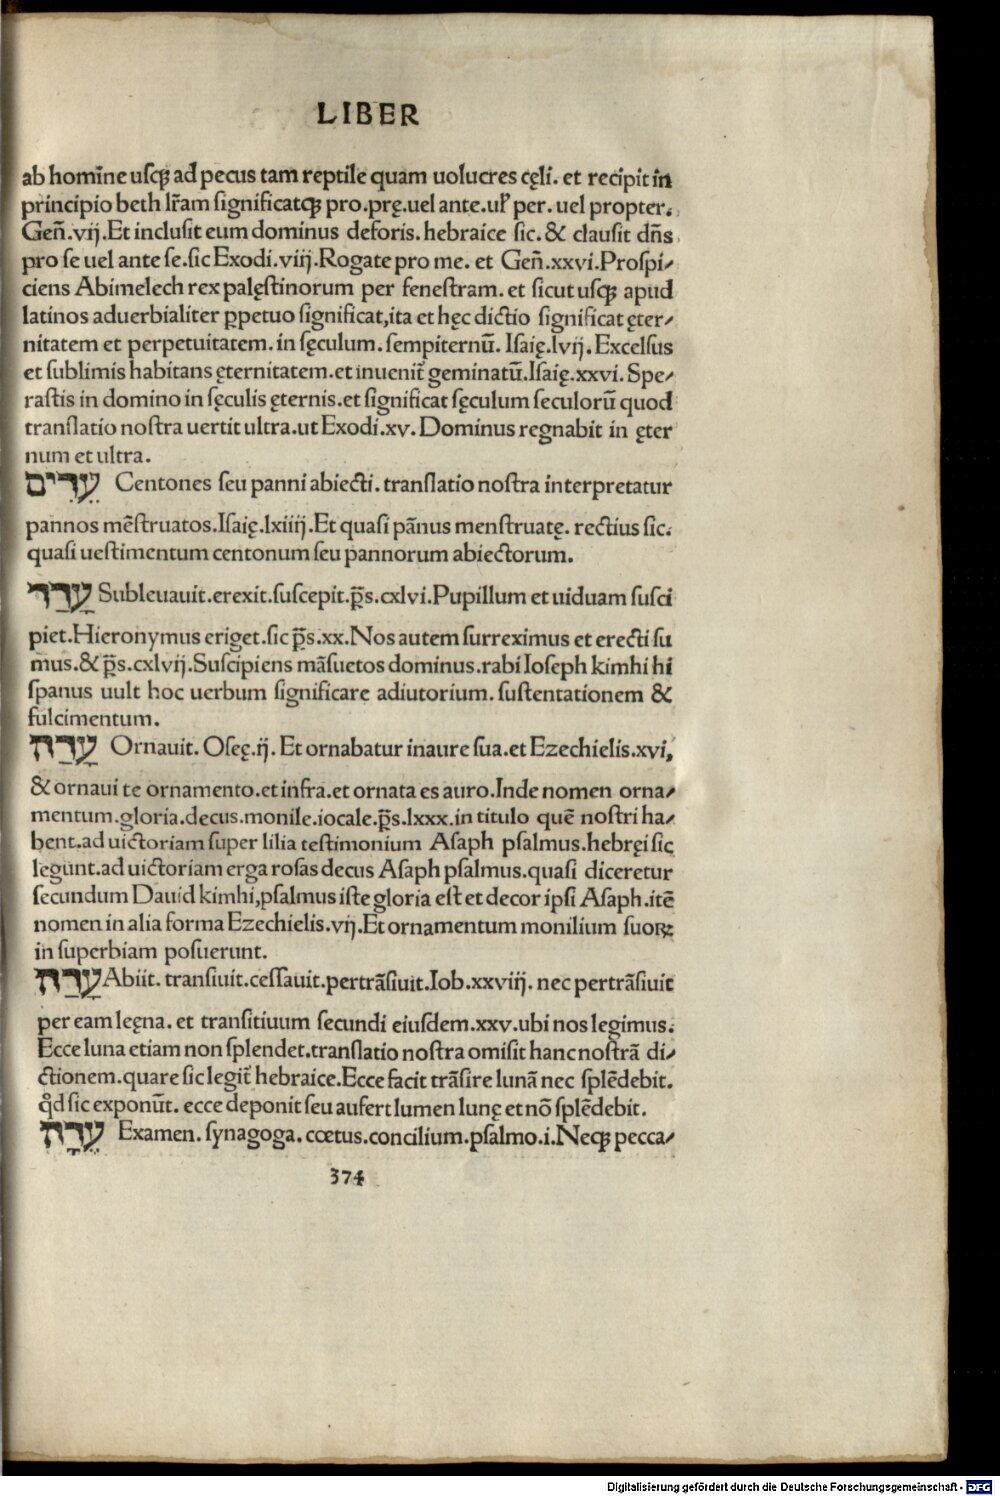 LIBER
ab homĩe uſq̃ ad pecus tam reptile quam uolucres cęli. et recipit in
principio beth lr̃am ſignificatq̃ pro.prę.uel ante.ul̃ per. uel propter.
Geñ.vij.Et incluſit eum dominus deforis. hebraice ſic. & clauſit dñs
pro ſe uel ante ſe.ſic Exodi.viij.Rogate pro me. et Geñ.xxvi.Proſpi⸗
ciens Abimelech rex palęſtinorum per feneſtram. et ſicut uſq̃ apud
latinos aduerbialiter ꝑpetuo ſignificat,ita et hęc dictio ſignificat ęter⸗
nitatem et perpetuitatem. in ſęculum. ſempiternũ. Iſaię.lvij. Excelſus
et ſublimis habitans ęternitatem.et inuenit̃ geminatũ.Iſaię.xxvi. Spe⸗
raſtis in domino in ſęculis ęternis.et ſignificat ſęculum ſeculorũ quod
tranſlatio noſtra uertit ultra.ut Exodi.xv. Dominus regnabit in ęter
num et ultra.
עִֵדִים Centones ſeu panni abiecti. tranſlatio noſtra interpretatur
pannos mẽſtruatos.Iſaię.lxiiij.Et quaſi pãnus menſtruatę. rectius ſic.
quaſi ueſtimentum centonum ſeu pannorum abiectorum.
עָדַד Subleuauit.erexit.ſuſcepit.p̃s.cxlvi.Pupillum et uiduam ſuſci
piet.Hieronymus eriget.ſic p̃s.xx.Nos autem ſurreximus et erecti ſu
mus.& p̃s.cxlvij.Suſcipiens mãſuetos dominus.rabi Ioſeph kimhi hi
ſpanus uult hoc uerbum ſignificare adiutorium. ſuſtentationem &
fulcimentum.
עָדַה Ornauit. Oſeę.ij. Et ornabatur inaure ſua.et Ezechielis.xvi,
& ornaui te ornamento.et infra.et ornata es auro.Inde nomen orna⸗
mentum.gloria.decus.monile.iocale.p̃s.lxxx.in titulo quẽ noſtri ha⸗
bent.ad uictoriam ſuper lilia teſtimonium Aſaph pſalmus.hebręi ſic
legunt.ad uictoriam erga roſas decus Aſaph pſalmus.quaſi diceretur
ſecundum Dauid kimhi,pſalmus iſte gloria eſt et decor ipſi Aſaph.itẽ
nomen in alia forma Ezechielis.vij.Et ornamentum monilium ſuoꝝ
in ſuperbiam poſuerunt.
עָדַה Abiit. tranſiuit.ceſſauit.pertrãſiuit.Iob.xxviij. nec pertrãſiuit
per eam leęna. et tranſitiuum ſecundi eiuſdem.xxv.ubi nos legimus.
Ecce luna etiam non ſplendet.tranſlatio noſtra omiſit hanc noſtrã di⸗
ctionem.quare ſic legit̃ hebraice.Ecce facit trãſire lunã nec ſplẽdebit.
qd̃ ſic exponũt. ecce deponit ſeu aufert lumen lunę et nõ ſplẽdebit.
עֵדָה Examen. ſynagoga. cœtus.concilium.pſalmo.i.Neq̃ pecca⸗
374
Digitalisierung gefördert durch die Deutsche Forschungsgemeinschaft - DFG